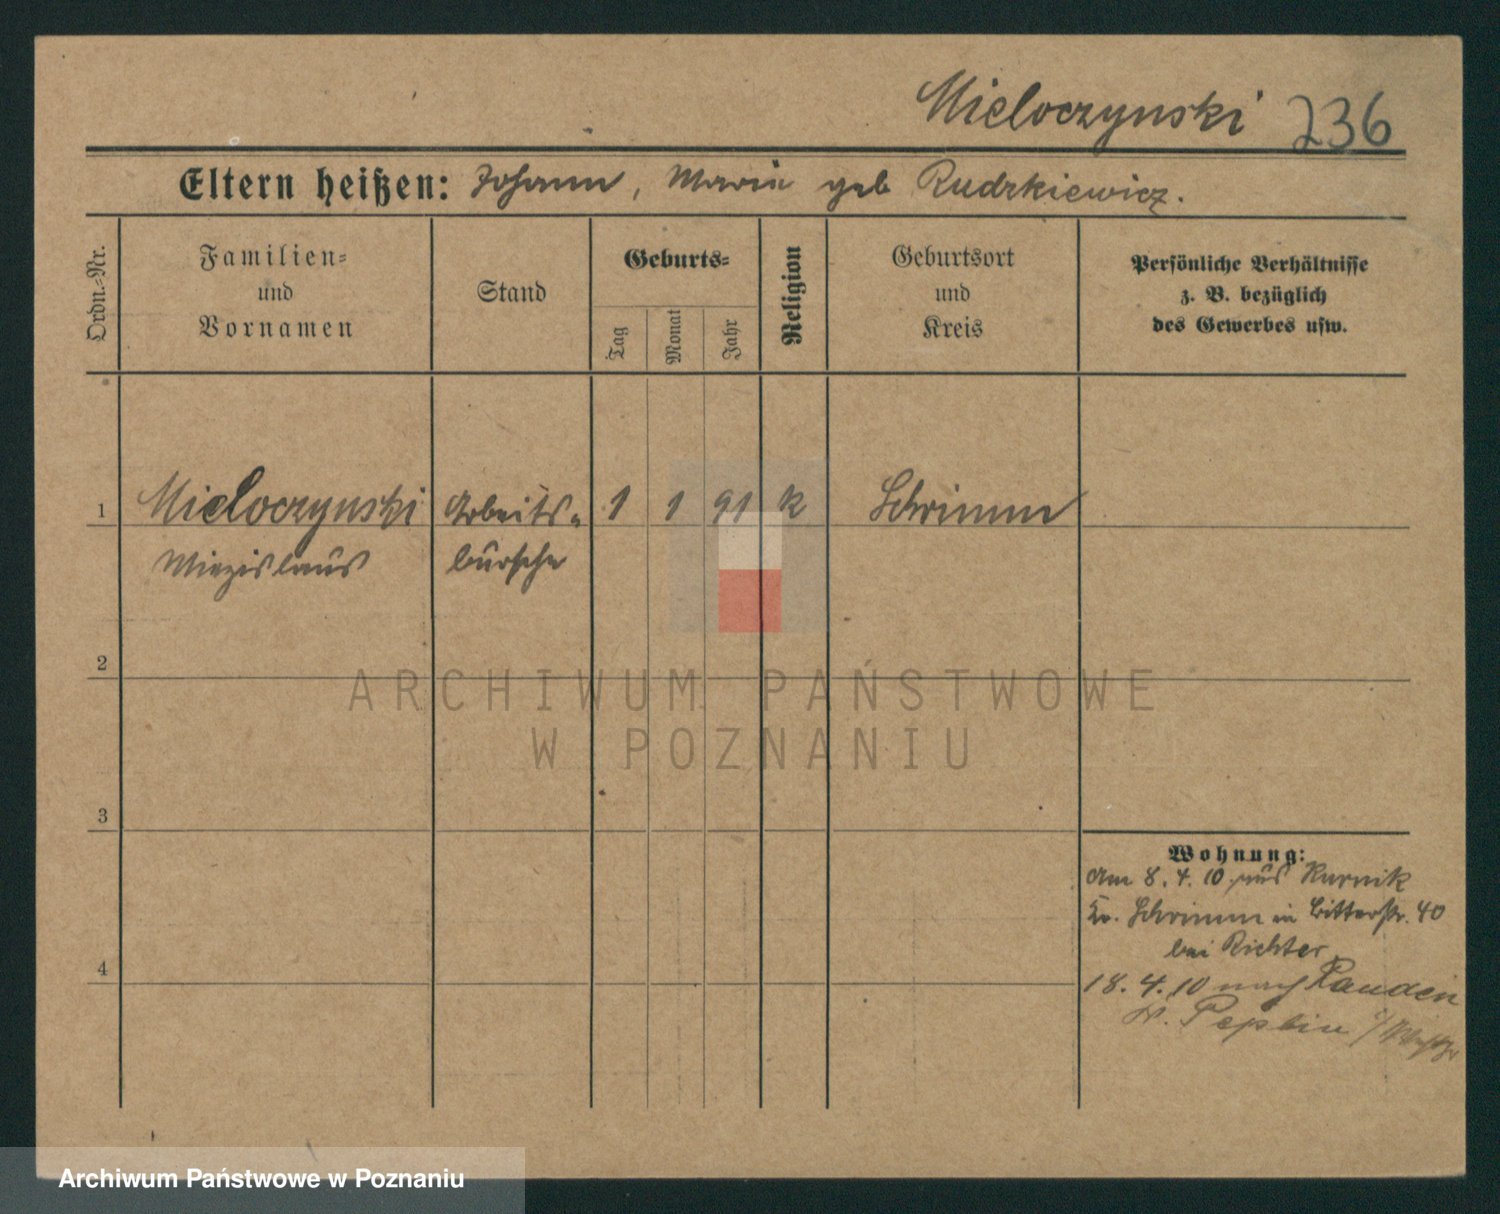 Mieloczynski 236
Eltern heißen: Johann, Maria geb Rudzkiewicz.
Ordn.-Nr.
Familien-
und
Vornamen
Stand
Geburts-
Tag
Monat
Jahr
Religion
Geburtsort
und
Kreis
Persönliche Verhältnisse
z. B. bezüglich
des Gewerbes usw.
1 Mieloczynski Arbeits- 1 1 91 k Schrimm
Miezislaus bursche
2
3
4
Wohnung:
Am 8. 4. 10 aus Kurnik
Kr. Schrimm in Bitterstr. 40
bei Richter
18. 4. 10 nach Rauden
b. Peplin i/Westpr
ARCHIWUM PAŃSTWOWE
W POZNANIU
Archiwum Państwowe w Poznaniu